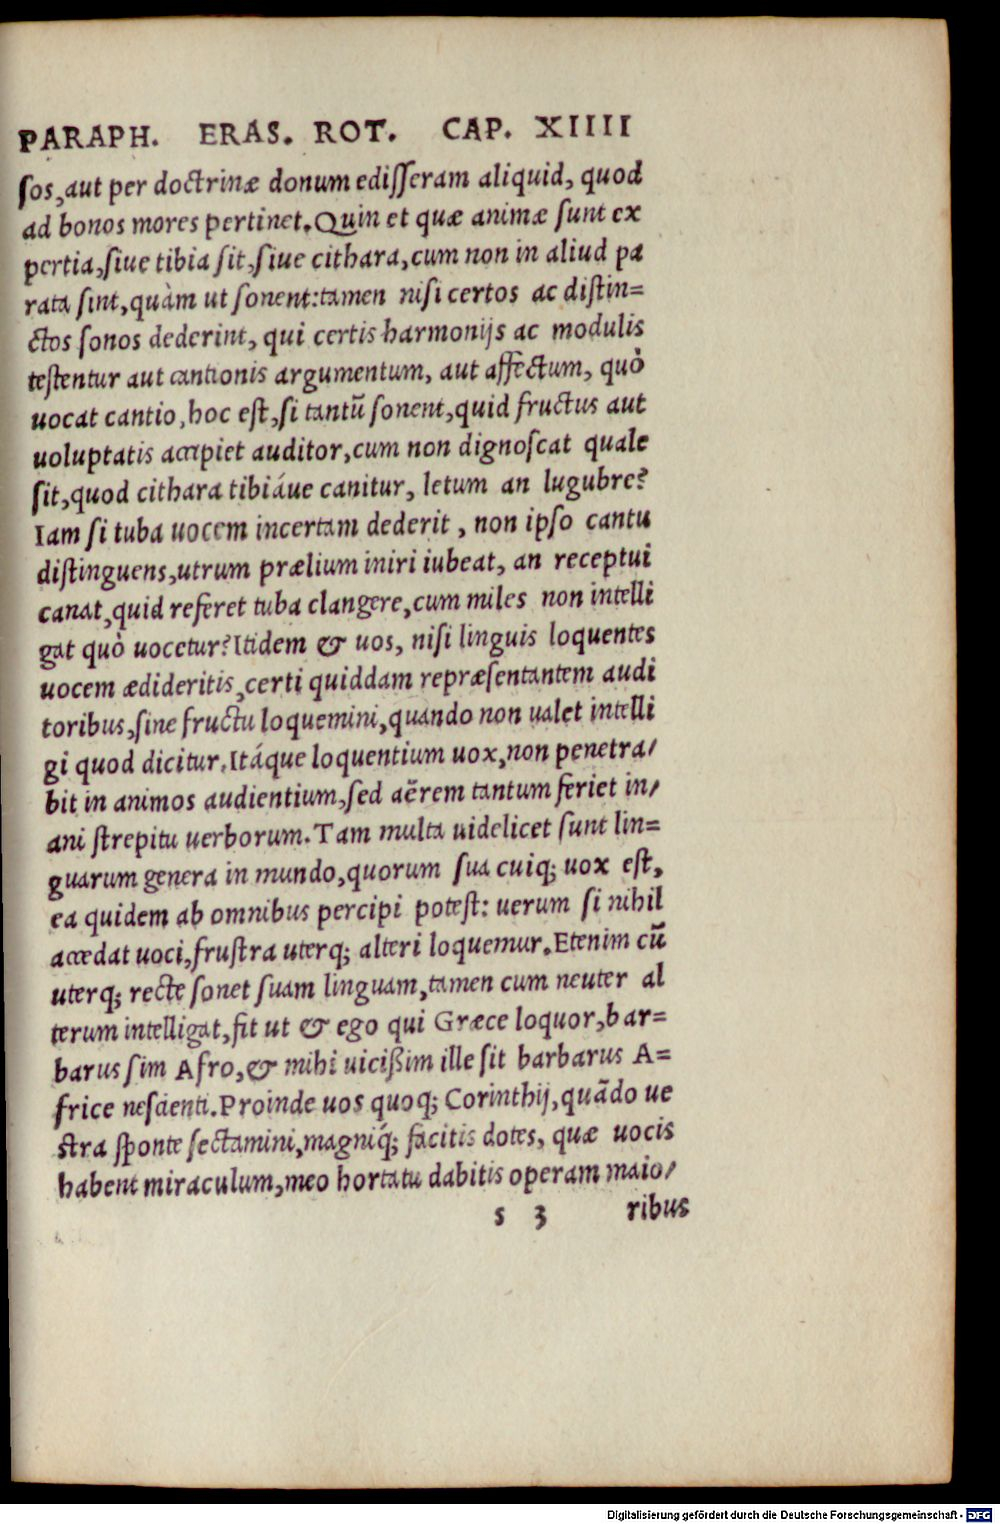 PARAPH. ERAS. ROT. CAP. XIIII
ſos, aut per doctrinæ donum ediſſeram aliquid, quod
ad bonos mores pertinet. Quin et quæ animæ ſunt ex
pertia, ſiue tibia ſit, ſiue cithara, cum non in aliud pa
rata ſint, quàm ut ſonent: tamen niſi certos ac diſtin=
ctos ſonos dederint, qui certis harmonijs ac modulis
teſtentur aut cantionis argumentum, aut affectum, quò
uocat cantio, hoc eſt, ſi tantũ ſonent, quid fructus aut
uoluptatis accipiet auditor, cum non dignoſcat quale
ſit, quod cithara tibiáue canitur, letum an lugubre?
Iam ſi tuba uocem incertam dederit, non ipſo cantu
diſtinguens, utrum prælium iniri iubeat, an receptui
canat, quid referet tuba clangere, cum miles non intelli
gat quò uocetur? Itidem & uos, niſi linguis loquentes
uocem ædideritis, certi quiddam repræſentantem audi
toribus, ſine fructu loquemini, quando non ualet intelli
gi quod dicitur. Itáque loquentium uox, non penetra/
bit in animos audientium, ſed aërem tantum feriet in/
ani ſtrepitu uerborum. Tam multa uidelicet ſunt lin=
guarum genera in mundo, quorum ſua cuiq; uox eſt,
ea quidem ab omnibus percipi poteſt: uerum ſi nihil
accedat uoci, fruſtra uterq; alteri loquemur. Etenim cũ
uterq; recte ſonet ſuam linguam, tamen cum neuter al
terum intelligat, fit ut & ego qui Græce loquor, bar=
barus ſim Afro, & mihi uicißim ille ſit barbarus A=
frice neſcienti. Proinde uos quoq; Corinthij, quãdo ue
ſtra ſponte ſectamini, magniq́; facitis dotes, quæ uocis
habent miraculum, meo hortatu dabitis operam maio/
s 3 ribus
Digitalisierung gefördert durch die Deutsche Forschungsgemeinschaft - DFG